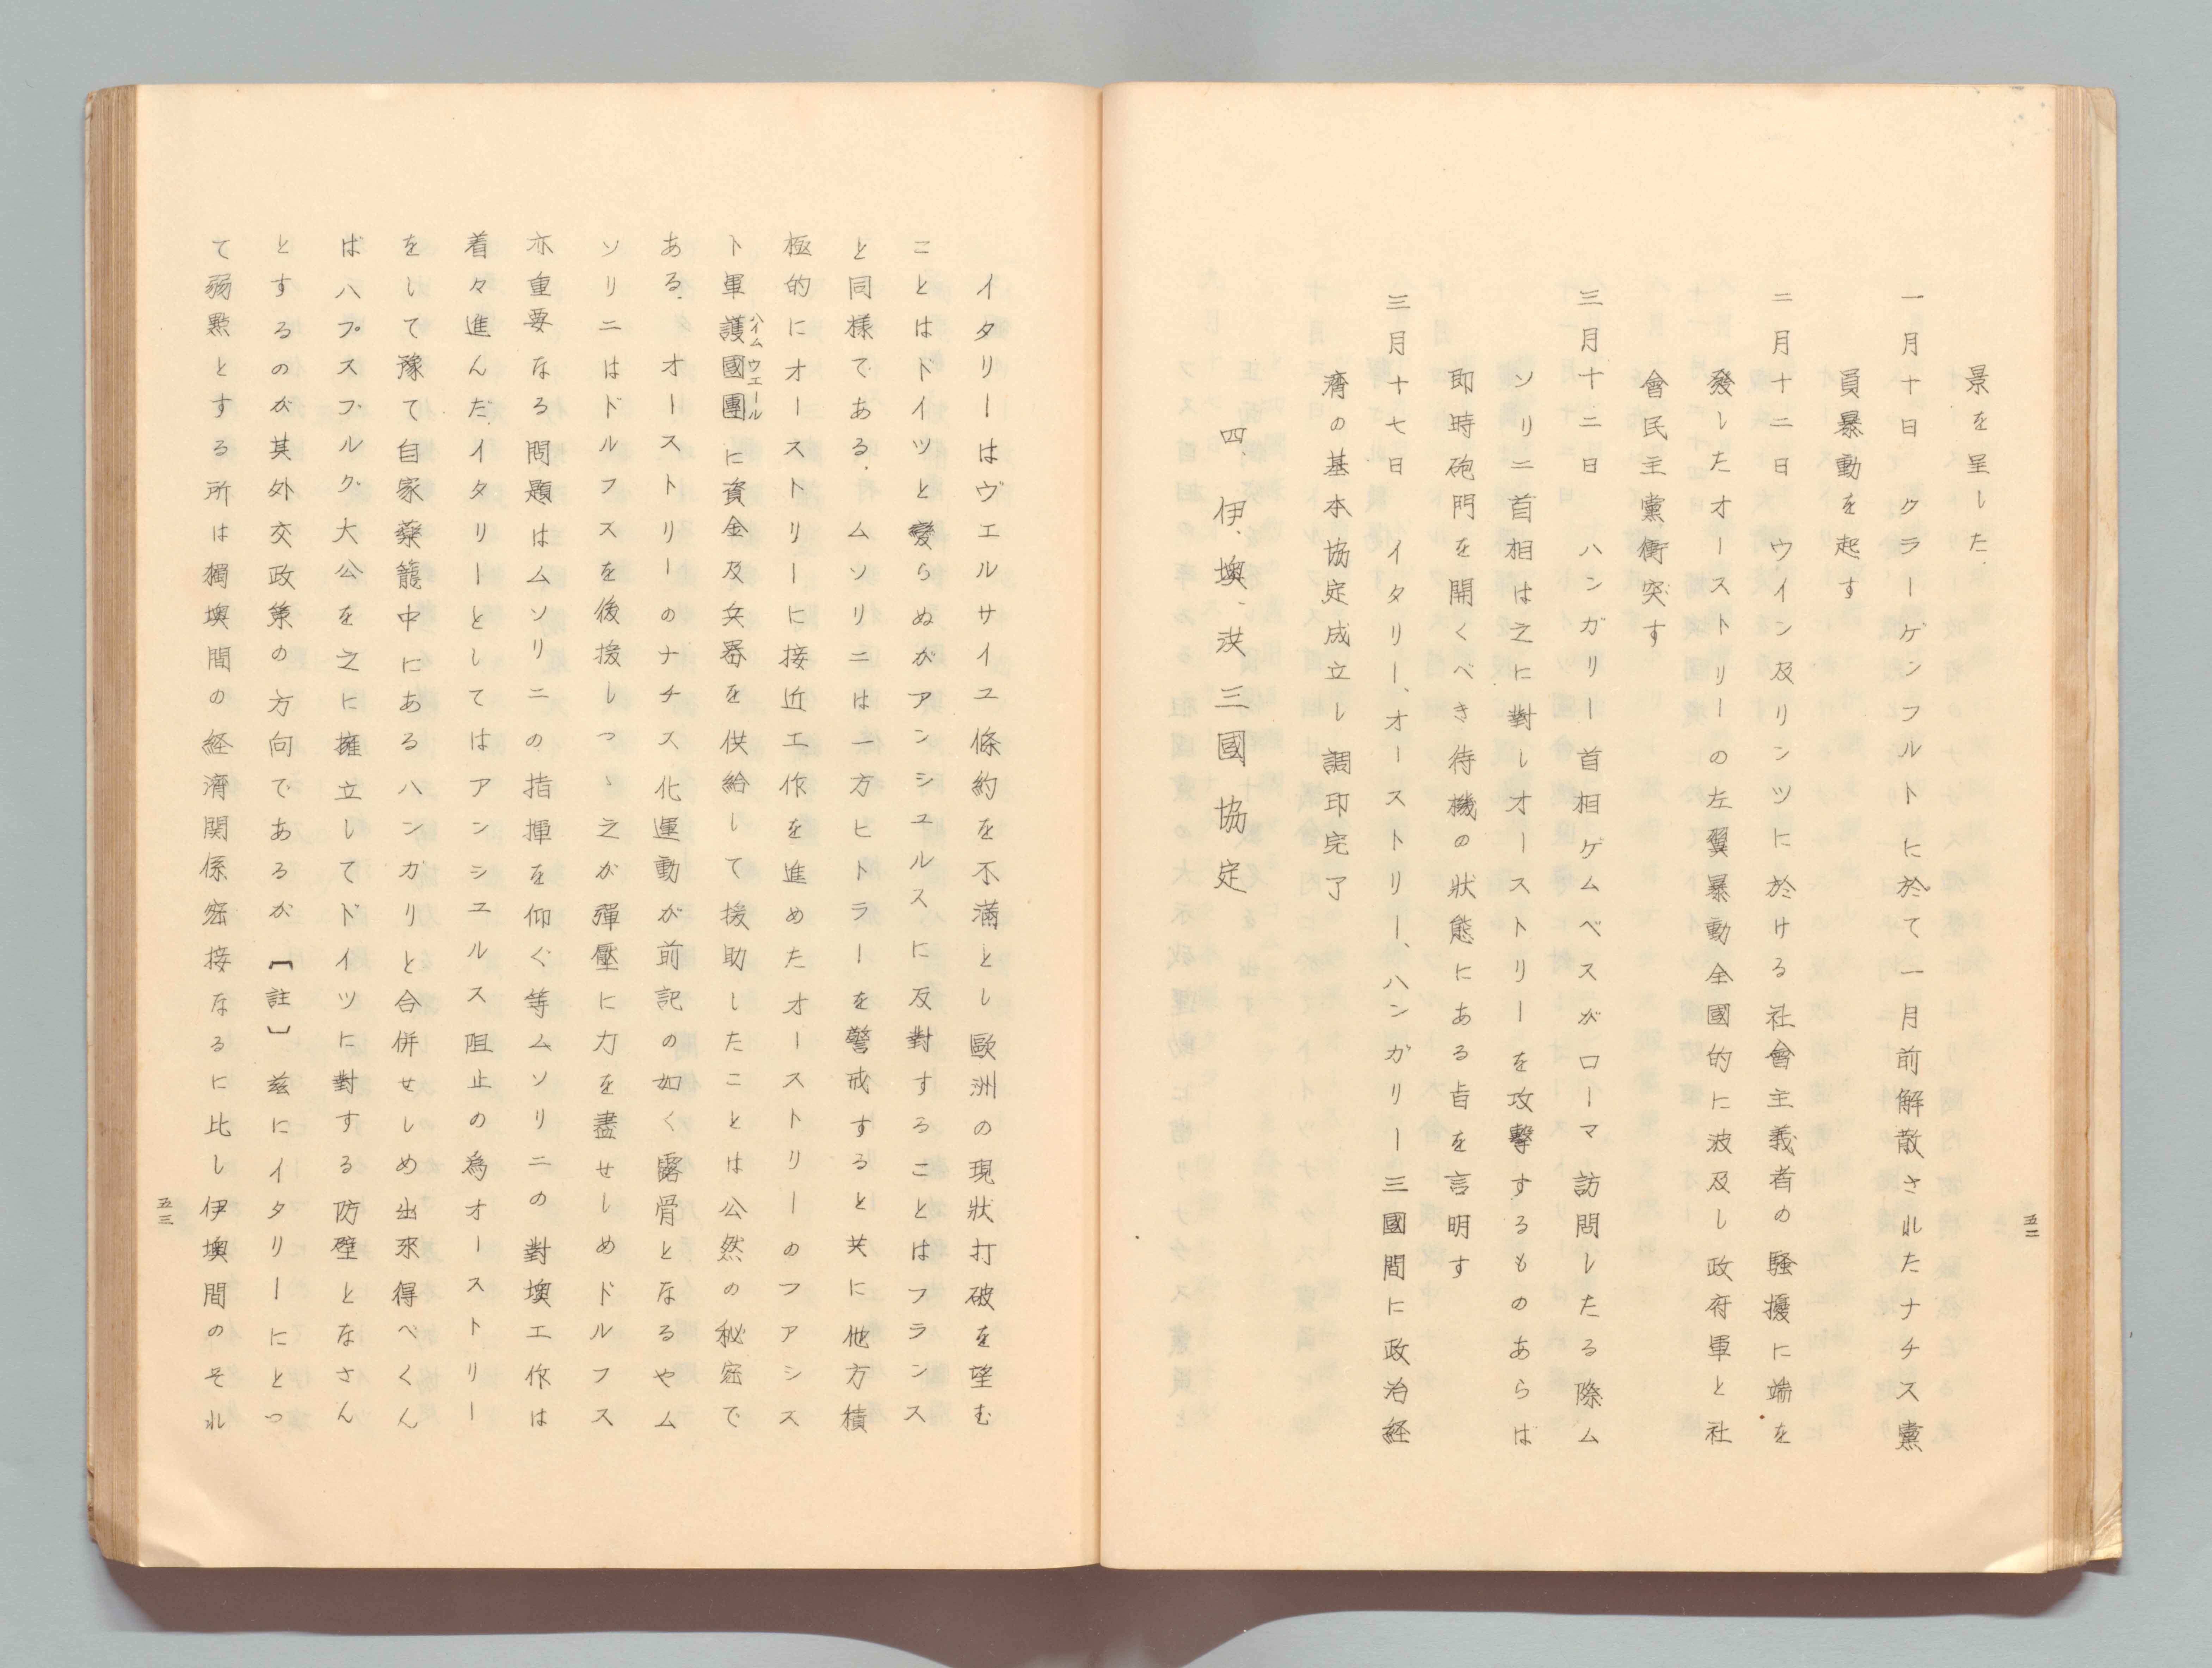 景を呈した.
一月十日　クラーゲンフルトに於て一月前解散されたナチス黨
員暴動を起す
二月十二日　ウイン及リンツに於ける社會主義者の騒擾に端を
發したオーストリーの左翼暴動全國的に波及し政府軍と社
會民主黨衝突す
三月十二日　ハンガリー首相ゲムベスがローマ訪問したる際ム
ソリニ首相は之に對しオーストリーを攻擊するものあらは
即時砲門を開くべき待機の狀態にある旨を言明す
三月十七日　イタリー、オーストリー、ハンガリー三國間に政治経
濟の基本協定成立し調印完了
四、伊、墺、洪三國協定
五二
イタリーはヴエルサイユ條約を不滿とし歐洲の現狀打破を望む
ことはドイツと變らぬがアンシユルスに反對することはフランス
と同様である.ムソリニは一方ヒトラーを警戒すると共に他方積
極的にオーストリーに接近工作を進めたオーストリーのフアシズ
ト軍護國團に資金及兵器を供給して援助したことは公然の秘密で
ハイムウエール
ある.オーストリーのナチス化運動が前記の如く露骨となるやム
ソリニはドルフスを後援しつゝ之が彈壓に力を盡せしめドルフス
亦重要なる問題はムソリニの指揮を仰ぐ等ムソリニの對墺工作は
着々進んだイタリーとしてはアンシユルス阻止の為オーストリー
をして豫て自家藥籠中にあるハンガリと合併せしめ出來得べくん
ばハプスブルク大公を之に擁立してドイツに對する防壁となさん
とするのが其外交政策の方向であるが〔註〕茲にイタリーにとつ
て弱點とする所は獨墺間の経濟関係密接なるに比し伊墺間のそれ
五三